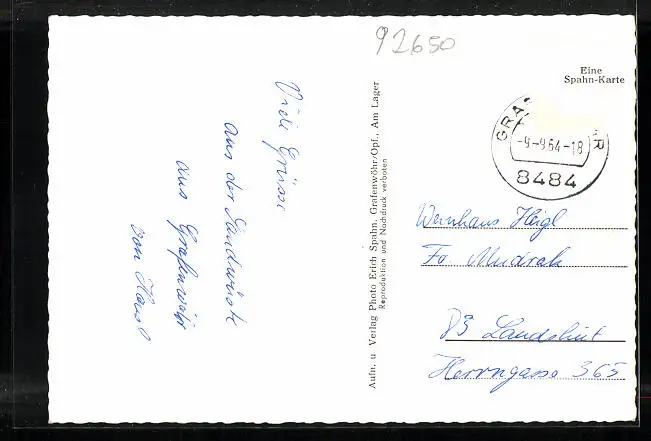 92650
Eine
Spahn-Karte
GRA R
-9.-9.64-18
8484
Viele Grüsse
aus der
aus Grafenwöhr
von
Aufn. u Verlag Photo Erich Spahn, Grafenwöhr/Opf., Am Lager
Reproduktion und Nachdruck verboten
Weinhaus
Fa. Mudrak
83 Landshut
Herrngasse 365